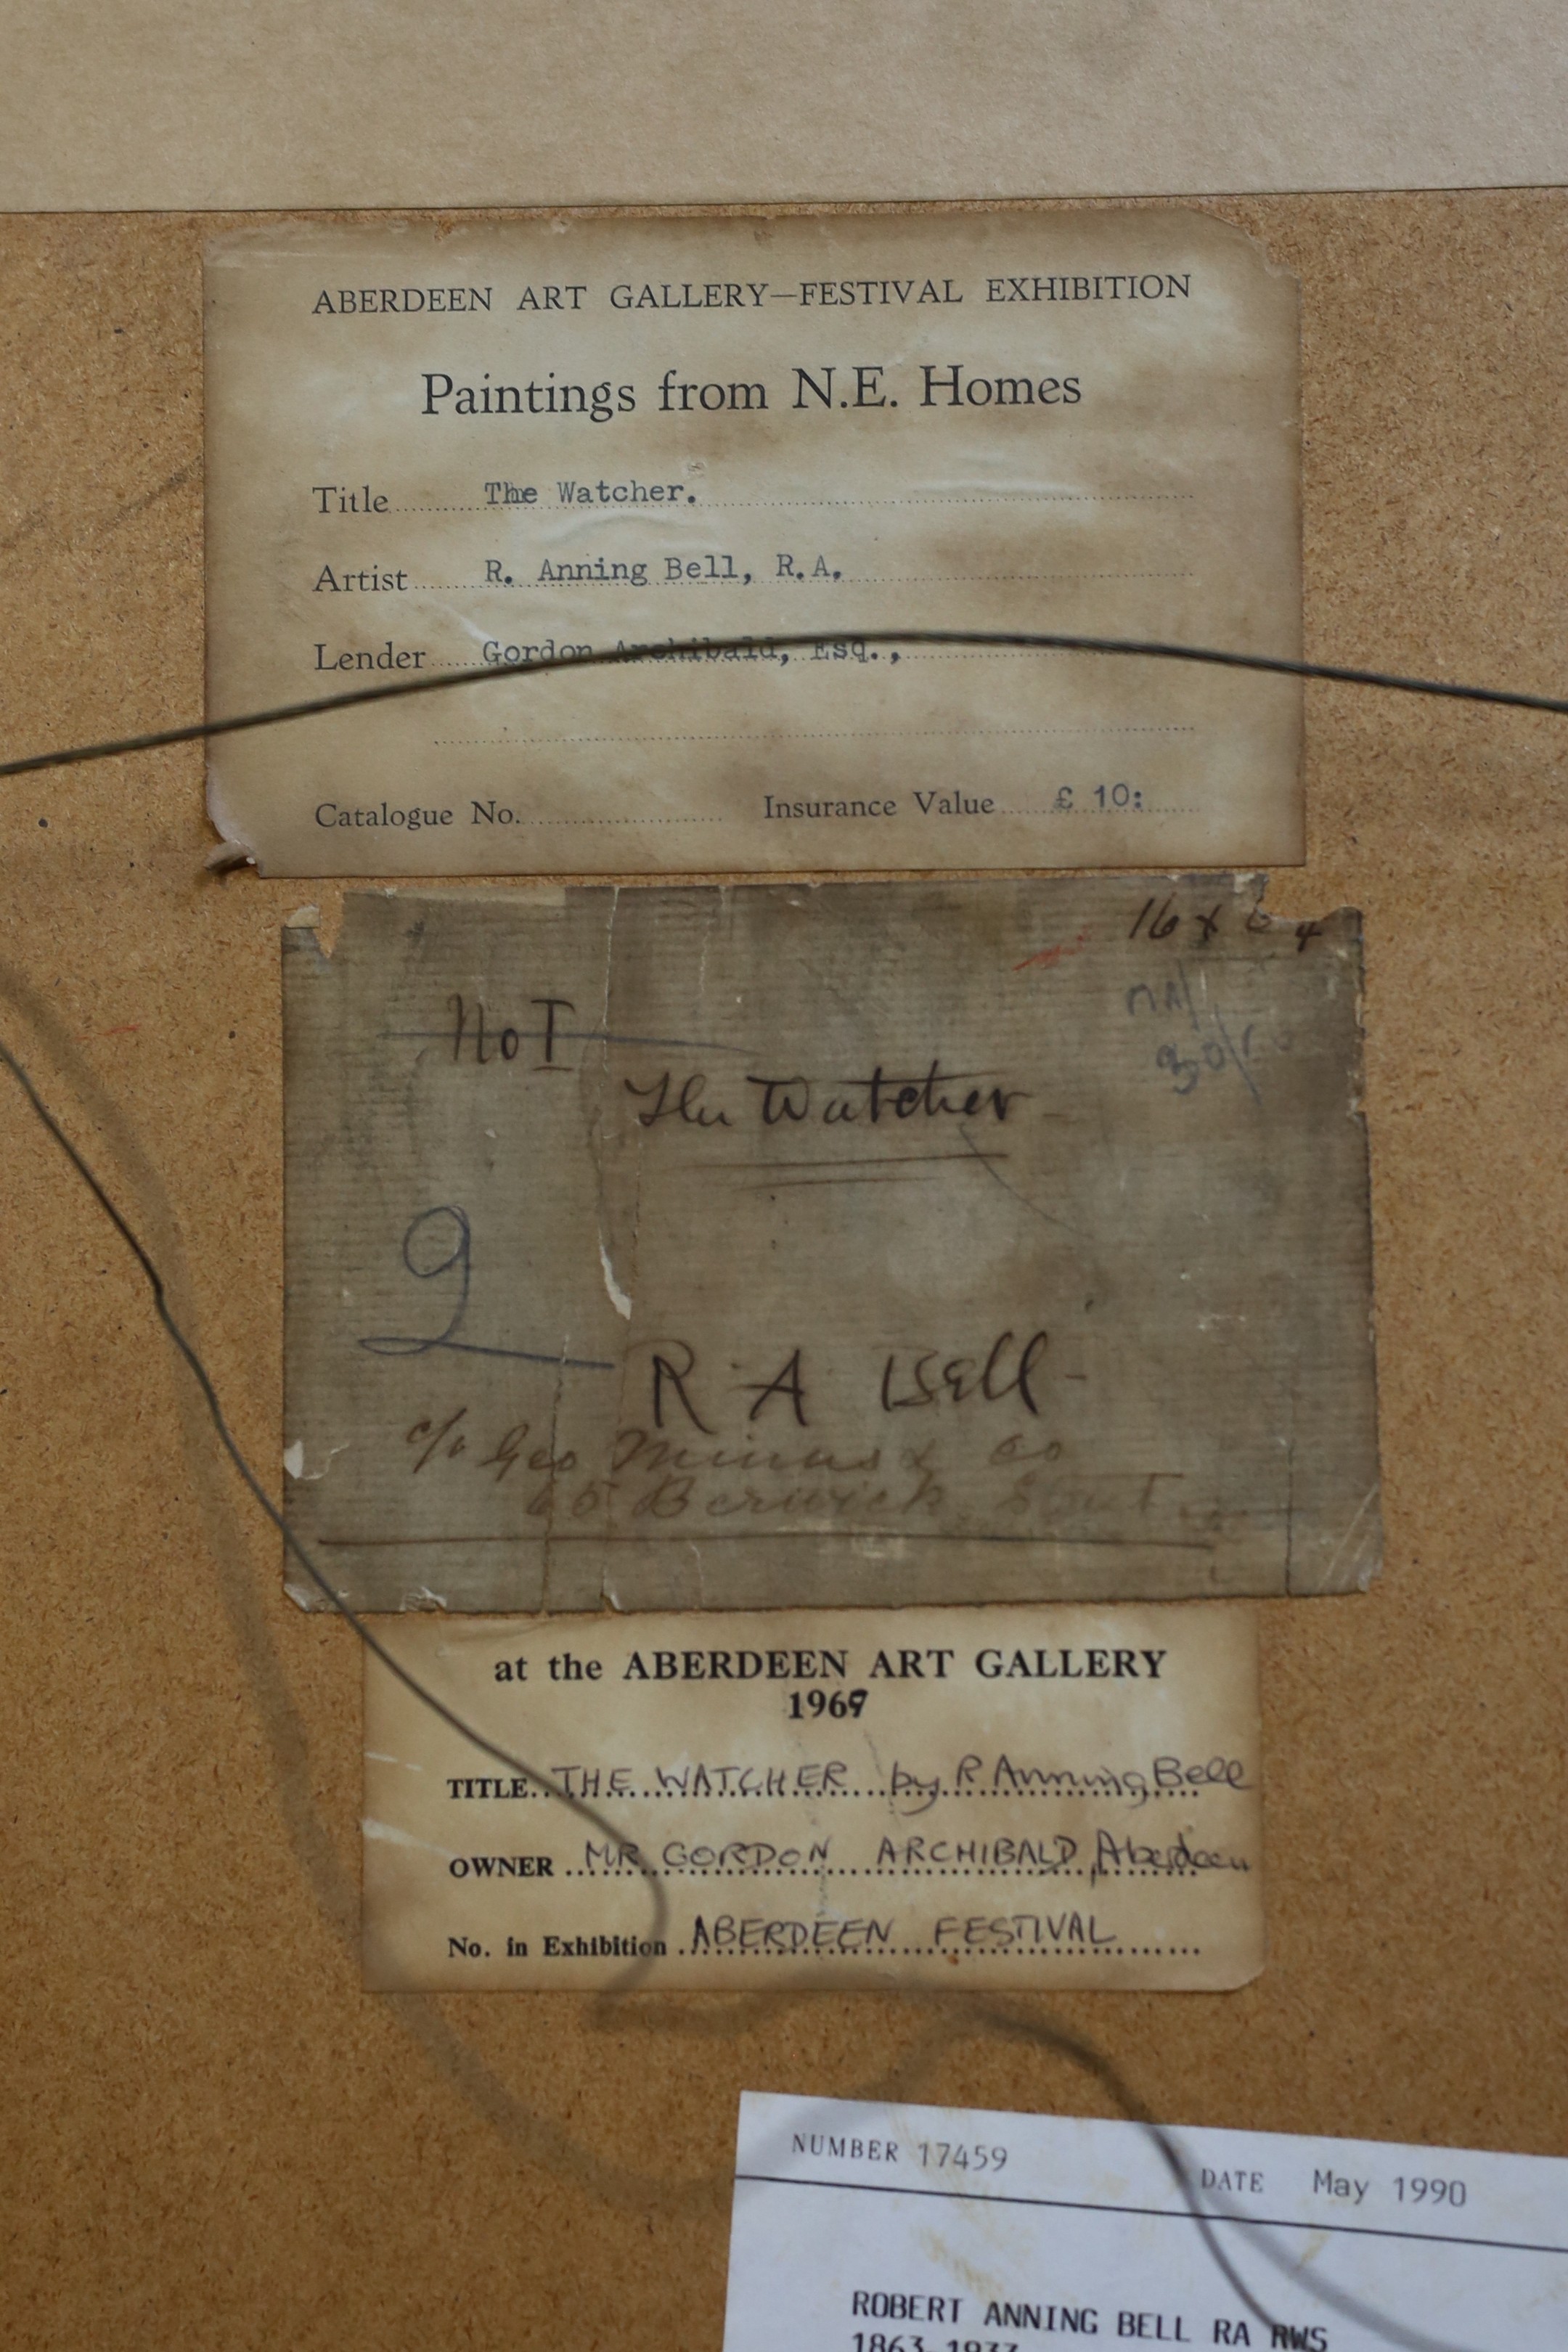 ABERDEEN ART GALLERY—FESTIVAL EXHIBITION
Paintings from N.E. Homes
Title The Watcher.
Artist R. Anning Bell, R.A.
Lender Gordon Archibald, Esq.,
Catalogue No. Insurance Value £ 10:
16 x
No I
The Watcher
9
R A Bell -
c/o Geo & Co
65 Berwick Street
at the ABERDEEN ART GALLERY
1969
TITLE THE WATCHER by R Anning Bell
OWNER MR GORDON ARCHIBALD, Aberdeen
No. in Exhibition ABERDEEN FESTIVAL
NUMBER 17459 DATE May 1990
ROBERT ANNING BELL RA RWS
1863-1933